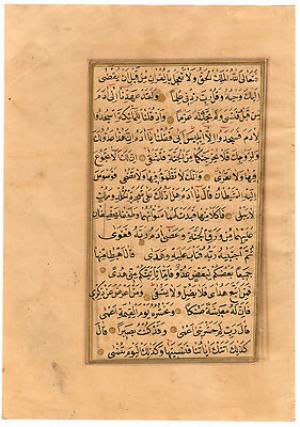 فتعالى الله الملك الحق ولا تعجل بالقرآن من قبل ان يقضى
اليك وحيه وقل رب زدني علما ولقد عهدنا الى آدم
من قبل فنسي ولم نجد له عزما واذ قلنا للملائكة اسجدوا
لآدم فسجدوا الا ابليس ابى فقلنا يا آدم ان هذا عدو لك
ولزوجك فلا يخرجنكما من الجنة فتشقى ان لك الا تجوع
فيها ولا تعرى وانك لا تظمؤا فيها ولا تضحى فوسوس
اليه الشيطان قال يا آدم هل ادلك على شجرة الخلد وملك
لا يبلى فاكلا منها فبدت لهما سوآتهما وطفقا يخصفان
عليهما من ورق الجنة وعصى آدم ربه فغوى
ثم اجتبيه ربه فتاب عليه وهدى قال اهبطا منها
جميعا بعضكم لبعض عدو فاما يأتينكم مني هدى
فمن اتبع هداي فلا يضل ولا يشقى ومن اعرض عن ذكري
فان له معيشة ضنكا ونحشره يوم القيمة اعمى
قال رب لم حشرتني اعمى وقد كنت بصيرا قال
كذلك اتتك آياتنا فنسيتها وكذلك اليوم تنسى